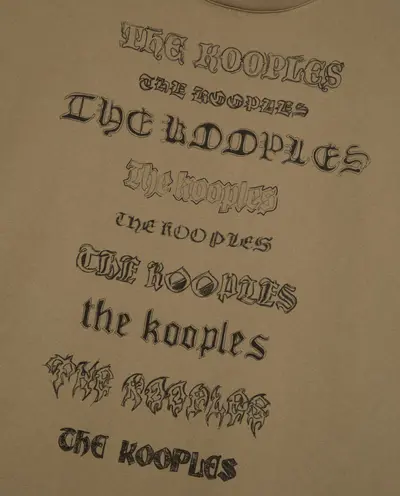 THE KOOPLES
THE KOOPLES
THE KOOPLES
The kooples
THE KOOPLES
THE KOOPLES
the kooples
THE KOOPLES
THE KOOPLES